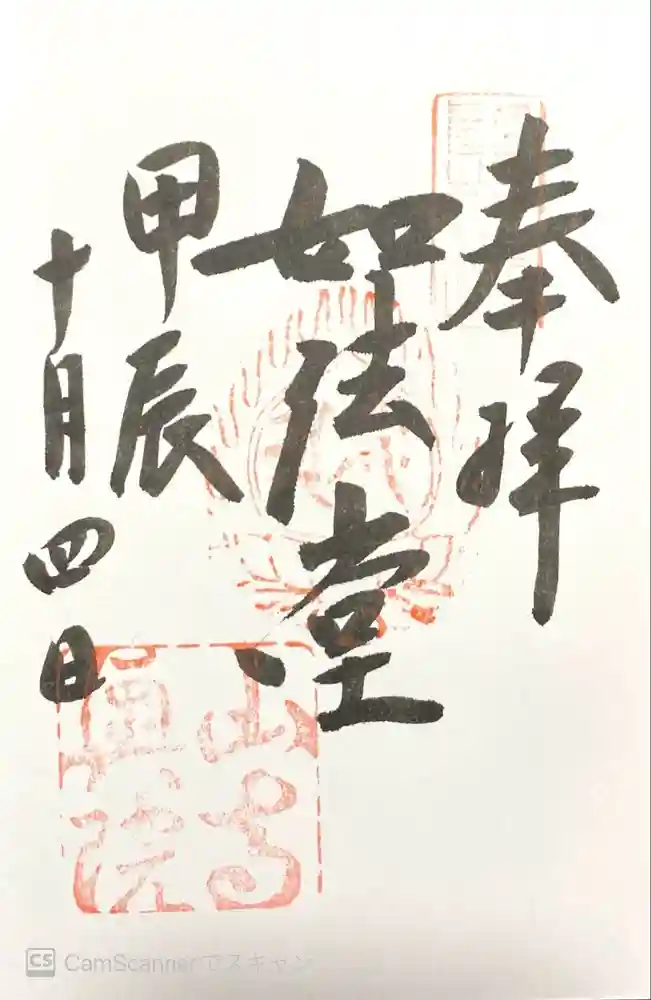 奉拝
如法堂
甲辰
十月四日
CS CamScannerでスキャン